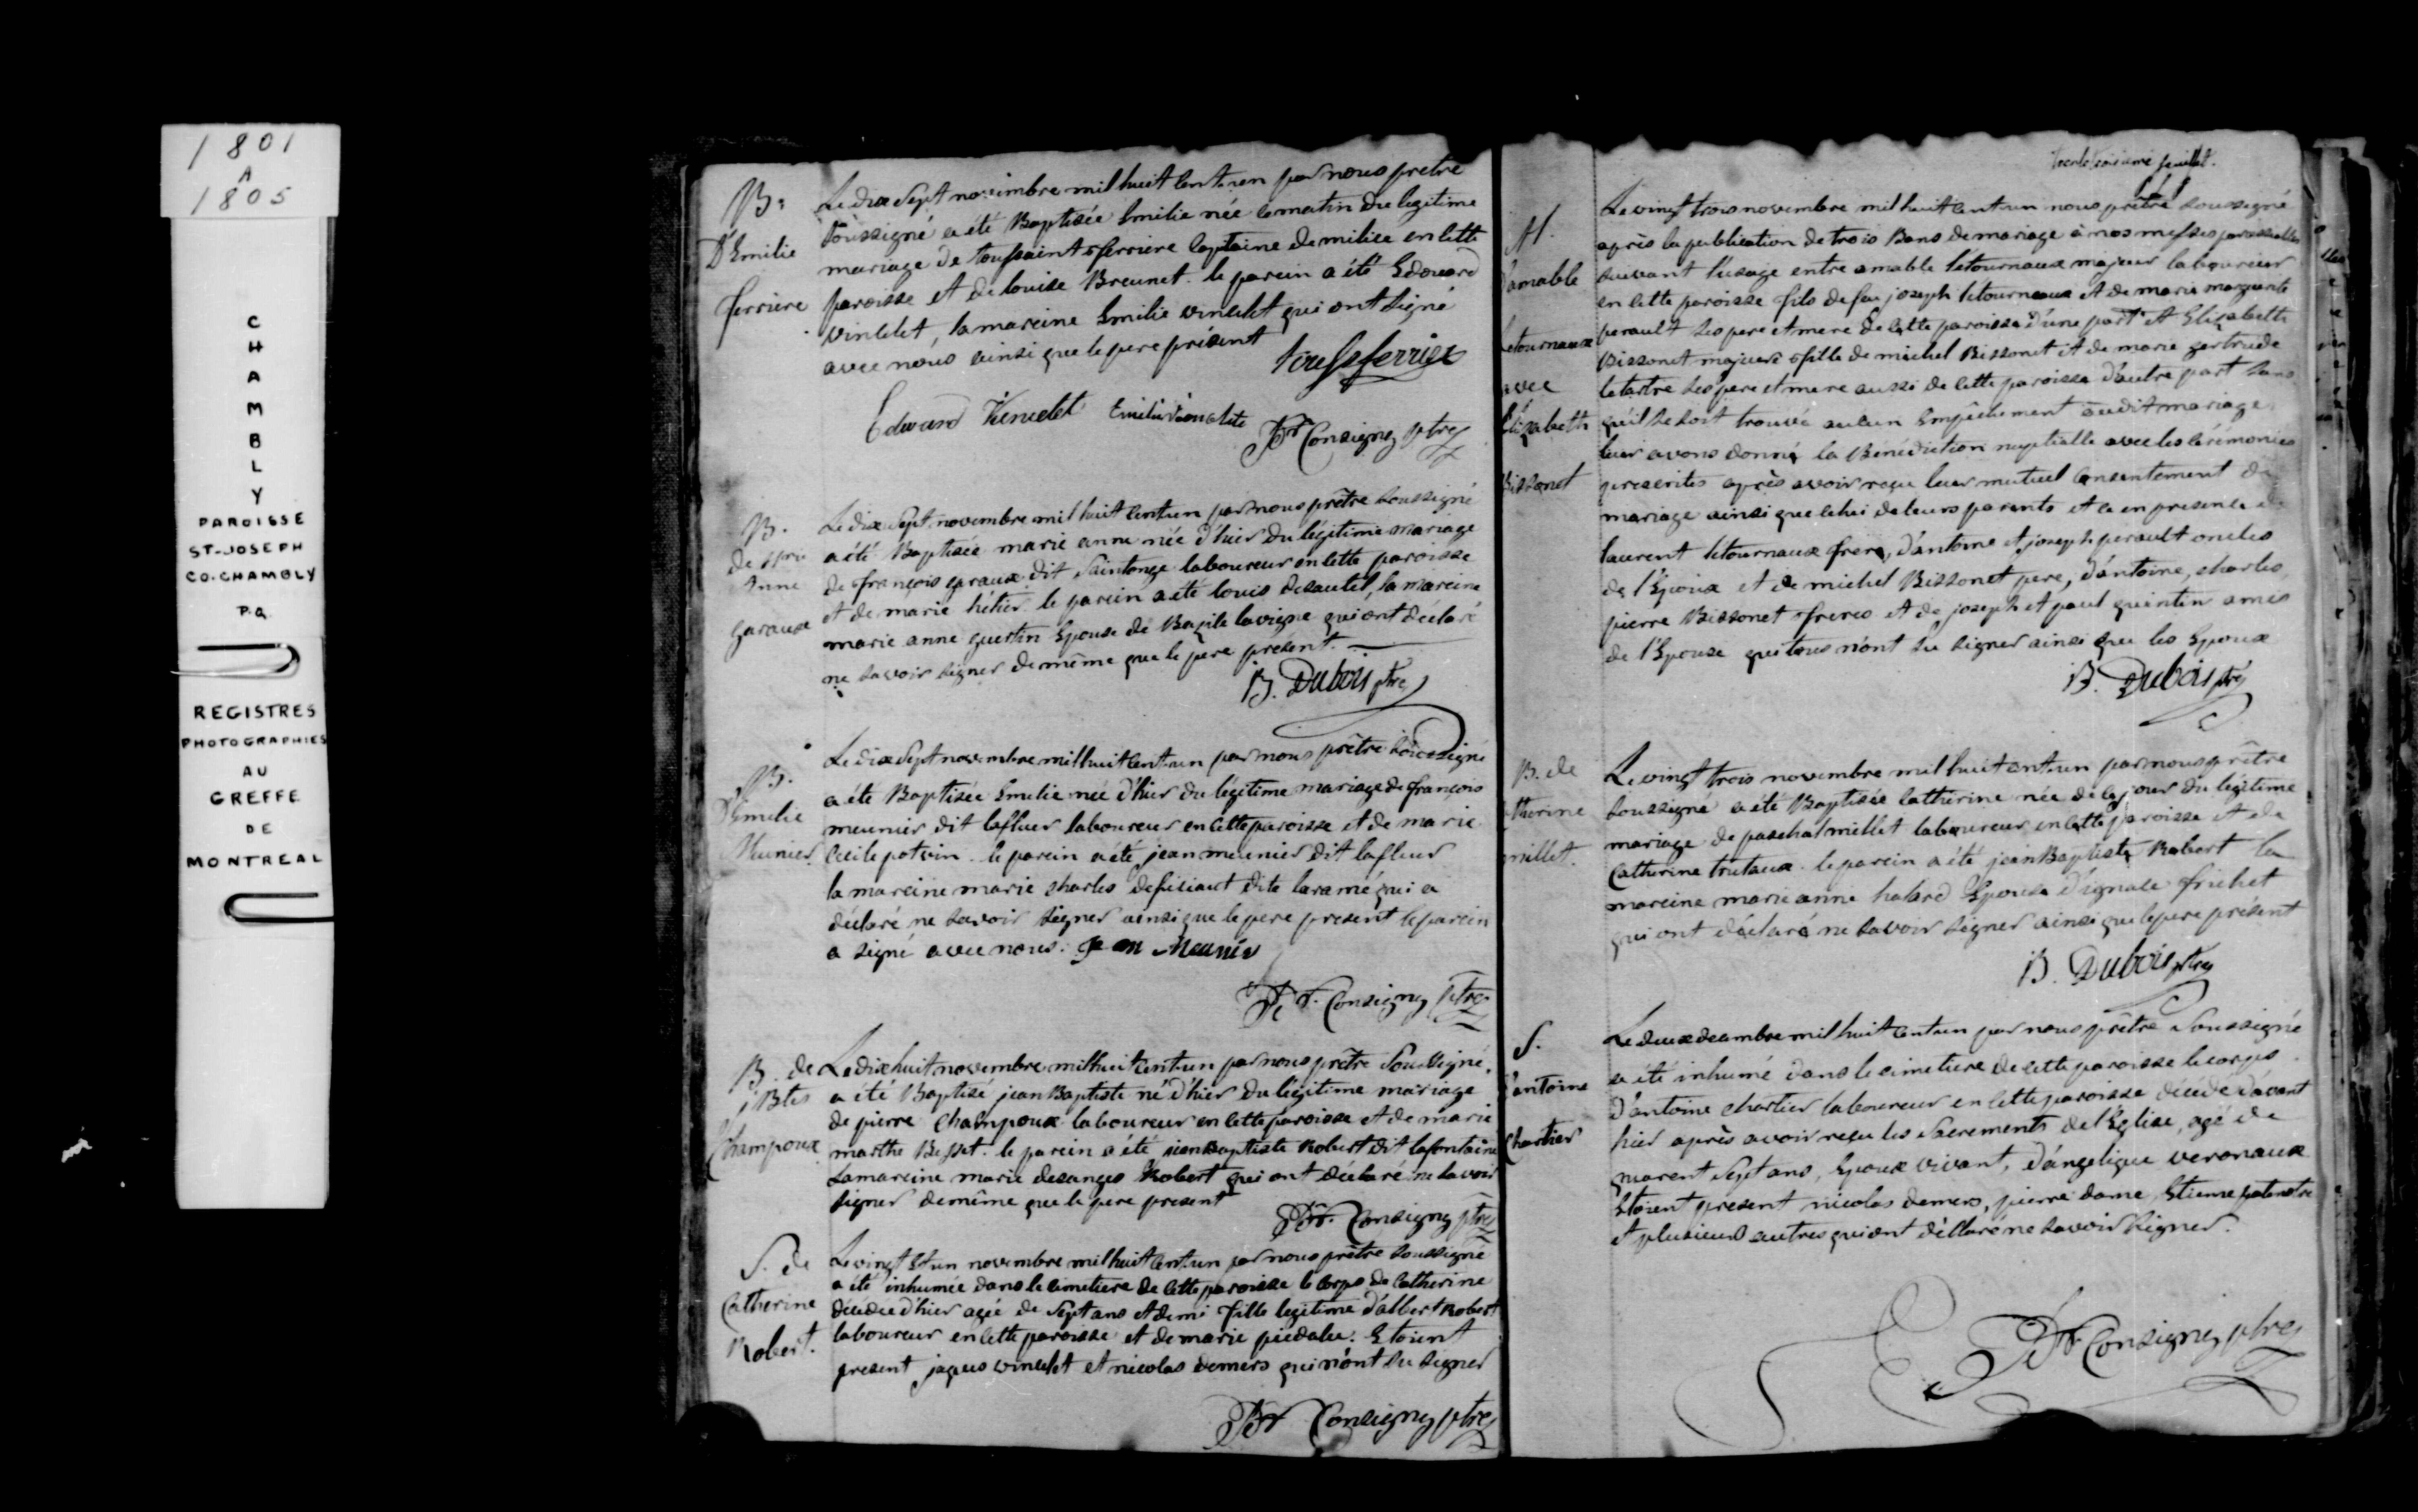 1801
A
1805
CHAMBLY
PAROISSE
ST-JOSEPH
CO. CHAMBLY
P.Q.
REGISTRES
PHOTOGRAPHIES
AU
GREFFE
DE
MONTREAL
B.
D'Emilie
ferriere
Le dix Sept novembre mil huit cent un par nous pretre
Soussigné a été Baptisée Emilie née le matin du legitime
mariage de toussaint ferriere Capitaine de milice en cette
paroisse et de louise Breunet. le parein a été Edouard
vincelet, la mareine Emilie vincelet qui ont signé
avec nous ainsi que le pere présent
touss ferrier
Edward Vincelet Emilie
Consigny ptre
B.
de Marie
Anne
garaux
Le dix Sept novembre mil huit cent un par nous prêtre soussigné
a été Baptisée marie anne née d'hier du légitime mariage
de françois garaux dit Saintonge laboureur en cette paroisse
et de marie hétier. le parein a été louis desautel, la mareine
marie anne guertin Epouse de Bazile lavigne qui ont déclaré
ne savoir signer de même que le pere présent.
B. Dubois ptre
B.
D'Emilie
Meunier
Le dix Sept novembre mil huit cent un par nous prêtre soussigné
a été Baptisée Emilie née d'hier du légitime mariage de françois
meunier dit lafleur laboureur en cette paroisse et de marie
Cecile potvin. le parein a été jean meunier dit lafleur
la mareine marie charles defisiaut dite laramé qui a
déclaré ne savoir signer ainsi que le pere present le parein
a signé avec nous. Jean Meunier
Consigny ptre
B. de
j Btes
Champoux
Le dix huit novembre mil huit cent un par nous prêtre Soussigné,
a été Baptisé jean Baptiste né d'hier du légitime mariage
de pierre Champoux laboureur en cette paroisse et de marie
marthe Besset. le parein a été jean Baptiste Robert dit lafontaine
La mareine marie desanges Robert qui ont déclaré ne savoir
signer de même que le pere present
Consigny ptre
S. de
Catherine
Robert.
Le vingt et un novembre mil huit cent un par nous prêtre soussigné
a été inhumée dans le cimetiere de cette paroisse le corps de Catherine
décédée d'hier agée de Sept ans et demi fille legitime d'albert Robert
laboureur en cette paroisse et de marie piedalue. Etoient
present jaques vincelet et nicolas demers qui n'ont su signer
Consigny ptre
trente troisieme feuillet.
M.
D'amable
Letournaux
avec
Elizabeth
Bissonet
Le vingt trois novembre mil huit cent un nous prêtre soussigné
après la publication de trois Bans de mariage à nos messes paroissialles
suivant l'usage entre amable letournaux majeur laboureur
en cette paroisse fils de feu joseph letourneaux et de marie marguerite
perault ses pere et mere de cette paroisse d'une part et Elizabeth
Bissonet majeure fille de michel Bissonet et de marie gertrude
letartre ses pere et mere aussi de cette paroisse d'autre part sans
qu'il se soit trouvé aucun Empêchement audit mariage
leur avons donné la Bénédiction nuptialle avec les cérémonies
prescrites après avoir reçu leur mutuel consentement de
mariage ainsi que celui de leurs parents et ce en presence de
laurent letournaux frere, d'antoine et joseph perault oncles
de l'Epoux et de michel Bissonet pere, d'antoine, charles,
pierre Bissonet freres et de joseph et paul quintin amis
de l'Epouse qui tous n'ont su signer ainsi que les Epoux
B. Dubois ptre
B. de
Catherine
millet.
Le vingt trois novembre mil huit cent un par nous prêtre
soussigné a été Baptisée Catherine née de ce jour du légitime
mariage de paschal millet laboureur en cette paroisse et de
Catherine trutaux. le parein a été jean Baptiste Robert la
mareine marie anne halard Epouse d'ignace frichet
qui ont déclaré ne savoir signer ainsi que le pere présent
B. Dubois ptre
S.
D'antoine
Chartier
Le deux decembre mil huit cent un par nous prêtre Soussigné
a été inhumé dans le cimetiere de cette paroisse le corps
d'antoine chartier laboureur en cette paroisse décédé d'avant
hier après avoir reçu les Sacrements de l'Eglise, agé de
quarent Sept ans, Epoux vivant, d'angelique veronaux
Etoient present nicolas demers, pierre dame, Etienne patenotre
et plusieurs autres qui ont déclaré ne savoir signer.
Consigny ptre